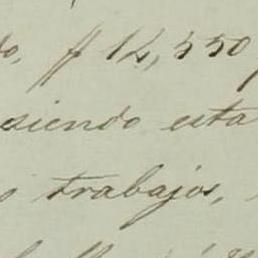 do, $ 12,550
siendo esta
o trabajos,